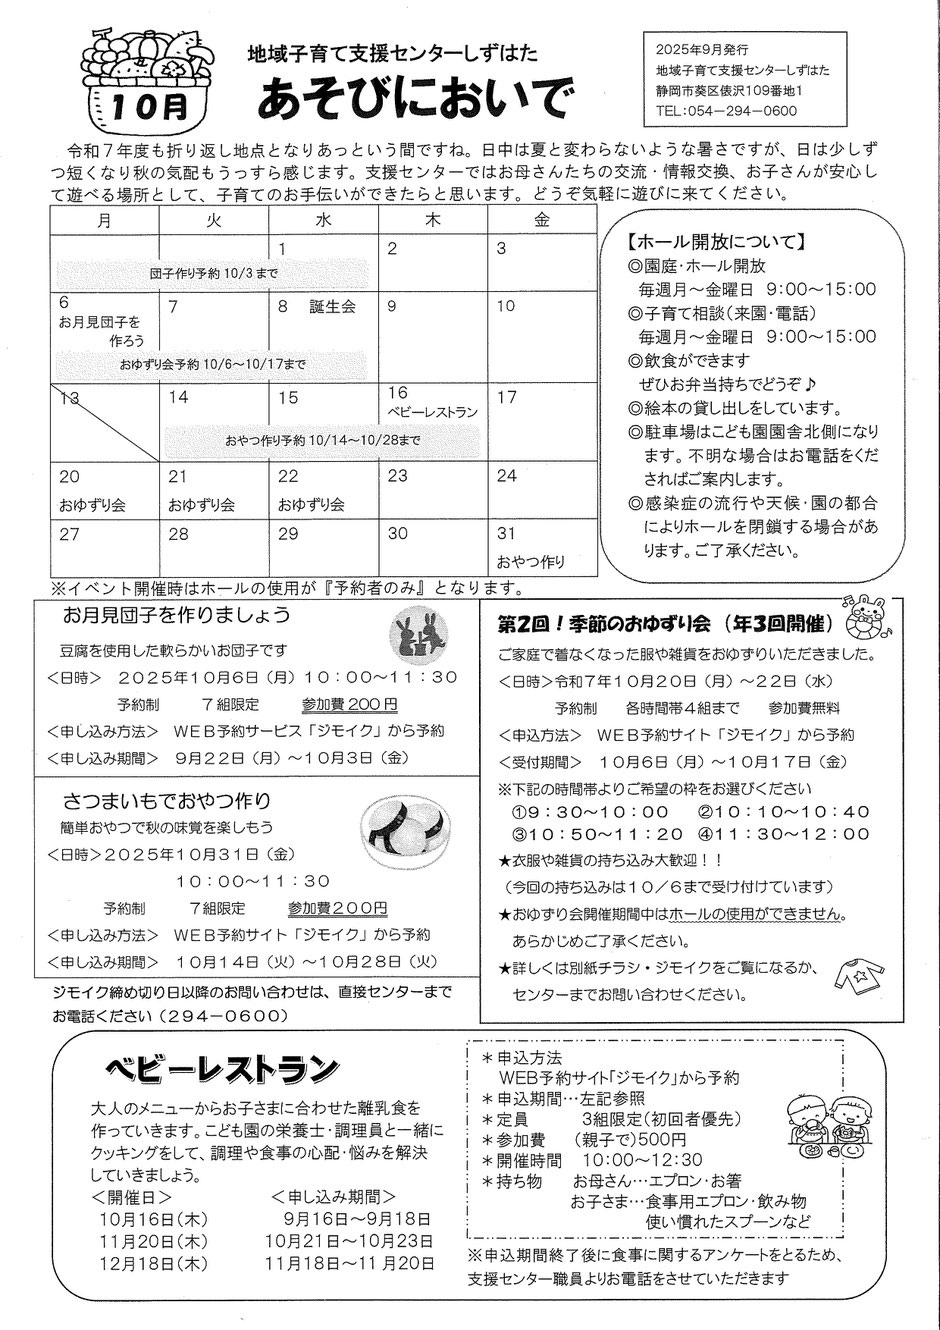 10月
地域子育て支援センターしずはた
あそびにおいで
2025年9月発行
地域子育て支援センターしずはた
静岡市葵区俵沢109番地1
TEL:054－294－0600
令和７年度も折り返し地点となりあっという間ですね。日中は夏と変わらないような暑さですが、日は少しず
つ短くなり秋の気配もうっすら感じます。支援センターではお母さんたちの交流・情報交換、お子さんが安心し
て遊べる場所として、子育てのお手伝いができたらと思います。どうぞ気軽に遊びに来てください。
月 火 水 木 金
1 2 3
団子作り予約 10/3 まで
6 7 8 誕生会 9 10
お月見団子を
作ろう
おゆずり会予約 10/6～10/17まで
13 14 15 16 17
ベビーレストラン
おやつ作り予約 10/14～10/28まで
20 21 22 23 24
おゆずり会 おゆずり会 おゆずり会
27 28 29 30 31
おやつ作り
※イベント開催時はホールの使用が『予約者のみ』となります。
【ホール開放について】
◎園庭･ホール開放
毎週月～金曜日 9:00～15:00
◎子育て相談（来園･電話）
毎週月～金曜日 9:00～15:00
◎飲食ができます
ぜひお弁当持ちでどうぞ♪
◎絵本の貸し出しをしています。
◎駐車場はこども園園舎北側になり
ます。不明な場合はお電話をくだ
さればご案内します。
◎感染症の流行や天候･園の都合
によりホールを閉鎖する場合があ
ります。ご了承ください。
お月見団子を作りましょう
豆腐を使用した軟らかいお団子です
＜日時＞ 2025年10月6日（月）10：00～11：30
予約制 7組限定 参加費200円
＜申し込み方法＞ WEB予約サービス「ジモイク」から予約
＜申し込み期間＞ 9月22日（月）～10月3日（金）
さつまいもでおやつ作り
簡単おやつで秋の味覚を楽しもう
＜日時＞2025年10月31日（金）
10：00～11：30
予約制 7組限定 参加費200円
＜申し込み方法＞ WEB予約サイト「ジモイク」から予約
＜申し込み期間＞ 10月14日（火）～10月28日（火）
ジモイク締め切り日以降のお問い合わせは、直接センターまで
お電話ください（294－0600）
第2回！季節のおゆずり会（年3回開催）
ご家庭で着なくなった服や雑貨をおゆずりいただきました。
＜日時＞令和7年10月20日（月）～22日（水）
予約制 各時間帯４組まで 参加費無料
＜申込方法＞ WEB予約サイト「ジモイク」から予約
＜受付期間＞ 10月6日（月）～10月17日（金）
※下記の時間帯よりご希望の枠をお選びください
①9：30～10：00 ②10：10～10：40
③10：50～11：20 ④11：30～12：00
★衣服や雑貨の持ち込み大歓迎！！
（今回の持ち込みは10／6まで受け付けています）
★おゆずり会開催期間中はホールの使用ができません。
あらかじめご了承ください。
★詳しくは別紙チラシ・ジモイクをご覧になるか、
センターまでお問い合わせください。
ベビーレストラン
大人のメニューからお子さまに合わせた離乳食を
作っていきます。こども園の栄養士･調理員と一緒に
クッキングをして、調理や食事の心配･悩みを解決
していきましょう。
＜開催日＞ ＜申し込み期間＞
10月16日(木) 9月16日～9月18日
11月20日(木) 10月21日～10月23日
12月18日(木) 11月18日～11月20日
＊申込方法
WEB予約サイト｢ジモイク｣から予約
＊申込期間…左記参照
＊定員 3組限定(初回者優先)
＊参加費 (親子で)500円
＊開催時間 10:00～12:30
＊持ち物 お母さん…エプロン･お箸
お子さま…食事用エプロン･飲み物
使い慣れたスプーンなど
※申込期間終了後に食事に関するアンケートをとるため、
支援センター職員よりお電話をさせていただきます